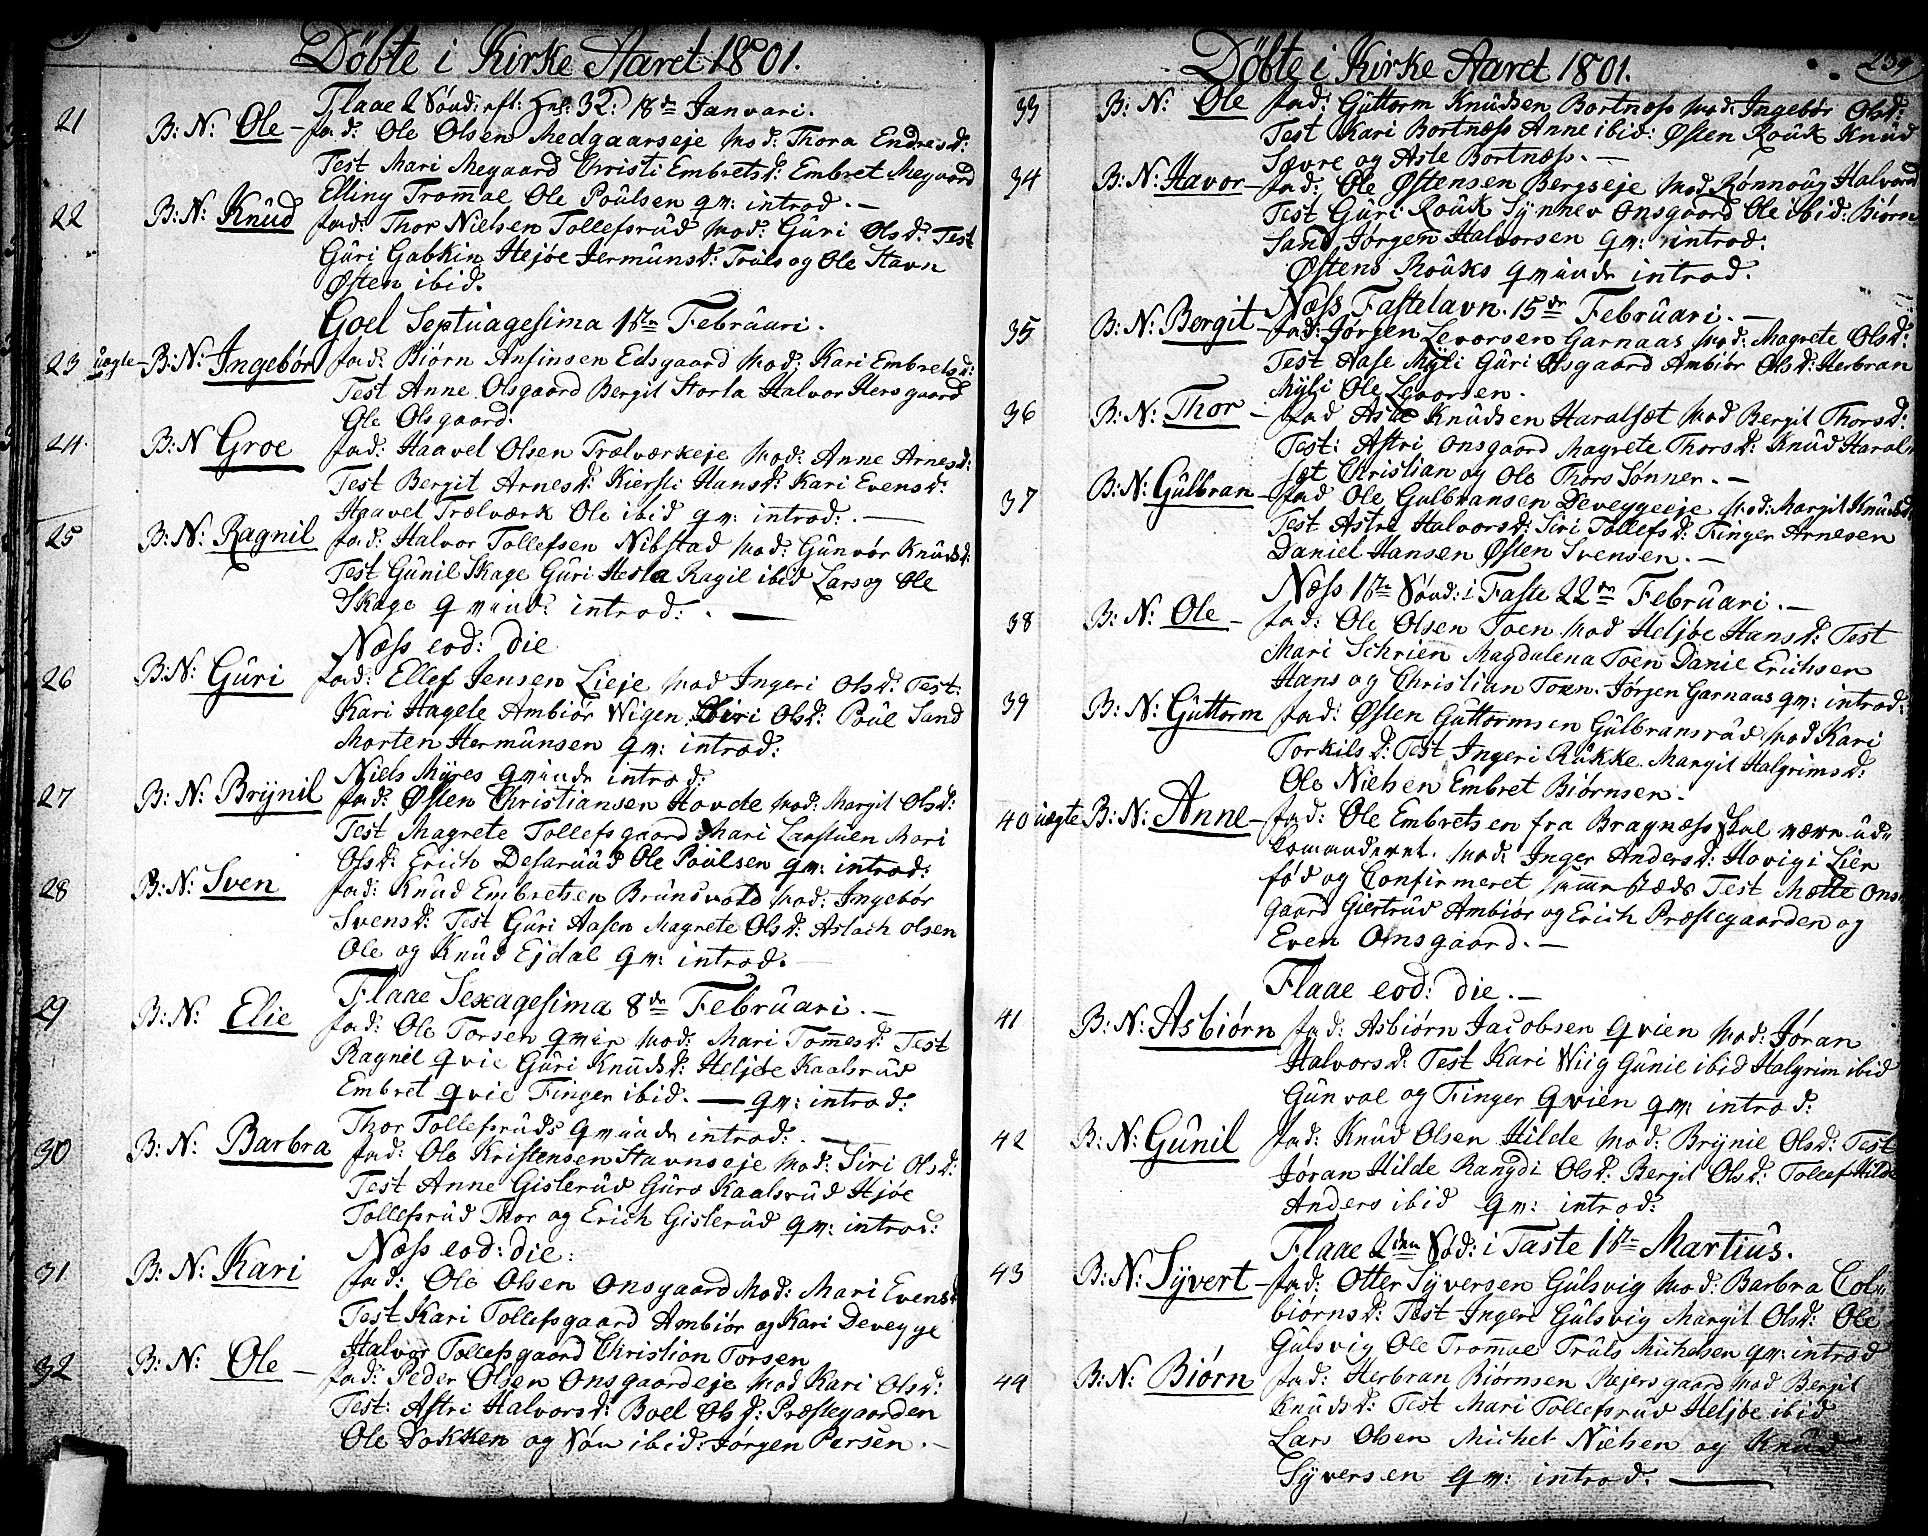 Döbte i Kirke Aaret 1801.
Flaae 2 Sönd: eft: H 3 K: D: 18de Januari.
21 B: N: Ole – fad: Ole Olsen Medgaarseje Mod: Thora Endresd:
Test Mari Megaard Christi Embretsd: Embret Megaard
Elling Tromme Ole Poulsen qv: introd. –
22 B: N: Knud fad: Thor Nielsen Tollefsrud Mod: Guri Olsd: Test
Guri Gabkin Hejöe Jermunsd: Truls og Ole Stavn
Østen ibid.
Goel Septuagesima 1ste Februari.
23 uægte – B: N: Ingebör fad: Biörn Ansinsen Edsgaard Mod: Kari Embretsd:
Test Anne Olsgaard Bergit Storla Halvor Hersgaard
Ole Olsgaard.
24 B: N Groe fad: Haavel Olsen Trælværkeje Mod: Anne Arnesd:
Test Bergit Arnesd: Kiersti Hansd: Kari Evensd:
Haavel Trælværk Ole ibid qv: introd: . –
25 B: N: Ragnil fad: Halvor Tollefsen Nibstad Mod: Gunvör Knudsd:
Test Gunil Skage Guri Hesla Ragil ibid Lars og Ole
Skage qvind: introd: . –
Næss eod: die
26 B: N: Guri fad: Ellef Jensen Lieje Mod Ingeri Olsd: Test:
Kari Hagele Ambiör Wigen Siri Olsd: Poul Sand
Morten Hermunsen qv: introd:
Niels Myres qvinde introd:
27 B: N: Brynil fad: Østen Christiansen Hovde Mod: Margit Olsd:
Test Magrete Tollefsgaard Mari Larsluen Mari
Olsd: Erich Desarud Ole Poulsen qv: introd:
28 B: N: Sven fad: Knud Embretsen Brunsvold Mod: Ingebör
Svensd: Test Guri Aasen Magrete Olsd: Aslach Olsen
Ole og Knud Ejdal qv: introd. –
Flaae Sexagesima 8de Februari. –
29 B: N: Elie fad: Ole Torsen qvier Mod: Mari Tomesd: Test
Ragnil qvie Guri Knudsd: Heljöe Kaalsrud
Embret qvie Finger ibid. – qv: introd:
Thor Tollefsruds qvinde introd: . –
30 B: N: Barbra fad: Ole Kristensen Stavnseje Mod: Siri Olsd:
Test Anne Gislerud Guro Kaalsrud Hjöe
Tollefsrud Thor og Erich Gislerud qv: introd:
Næss eod: die:
31 B: N: Kari fad: Ole Olsen Onsgaard Mod: Mari Evensd
Test Kari Tollefsgaard Ambiör og Kari Devegge
Halvor Tollefsgaard Christian Torsen
32 B: N: Ole – fad: Peder Olsen Onsgaardeje Mod Kari Olsd:
Test: Astri Halvorsd: Boel Olsd: Præstegaarden
Ole Dokken og Søn ibid: Jörgen Persen. –
Döbte i Kirke Aaret 1801. 239
33 B: N: Ole fad: Guttorm Knudsen Bortnæss Mod: Ingebör Olsd:
Test Kari Bortnæss Anne ibid: Østen Rouk Knud
Sævre og Asle Bortnæss. –
34 B: N: Havor – fad: Ole Østensen Bergseje Mod Rønnoug Halvorsd
Test Guri Rouk Synnev Onsgaard Ole ibid: Biørn
Sand Jørgen Halvorsen qv: introd:
Østens Rouks qvinde introd.
Næss Fastelavn. 15de Februari. –
35 B: N: Bergit – fad: Jørgen Levorsen Garnaas Mod: Magrete Olsd:
Test Aase Myli Guri Olsgaard Ambiör Olsd: Herbran
Myli Ole Levorsen.
36 B: N: Thor – fad Asle Knudsen Haralset Mod Bergit Thorsd:
Test: Astri Onsgaard Magrete Thorsd: Knud Haral
set Christian og Ole Thors Sønner. –
37 B: N: Gulbran – fad Ole Gulbransen Deveggeeje Mod: Margit Knudsd
Test Astri Halvorsd: Siri Tollefsd: Finger Arnesen
Daniel Hansen Østen Svensen. –
Næss 1ste Sönd: i Faste 22de Februari. –
38 B: N: Ole – fad: Ole Olsen Toen Mod Heljöe Hansd: Test
Mari Schrien Magdalena Toen Danie Erichsen
Hans og Christian Toen. Jørgen Garnaas qv: introd:
39 B: N: Guttorm fad: Østen Guttormsen Gulbransrud Mod Kari
Torkilsd: Test Ingeri Rukke. Margit Halgrimsd:
Ole Nielsen Embret Biørnsen –
40 uægte B: N: Anne – fad: Ole Embretsen fra Bragnæss skal være ud„
komanderet. Mod: Inger Andersd: Hovig i Lier
fød og Confirmeret samme stæds Test Mette Ons
gaard Giertrud Ambiör og Erich Præstegaarden og
Even Onsgaard. –
Flaae eod: die. –
41 B: N: Asbiørn fad: Asbiørn Jacobsen qvien Mod: Jøran
Halvorsd: Test Kari Wiig Gunil ibid Halgrim ibid
Gunval og Finger qvien qv: introd:
42 B: N: Gunil fad: Knud Olsen Hilde Mod: Brynil Olsd: Test
Jøran Hilde Rangdi Olsd: Bergit Olsd: Tollef Hilde
Anders ibid qv: introd:
Flaae 2den Sød: i Faste 1ste Martius.
43 B: N: Syvert – fad: Otter Syversen Gulsvig Mod: Barbra Col„
biørnsd: Test Ingeri Gulsvig Margit Olsd: Ole
Gulsvig Ole Tromme Truls Michelsen qv: introd
44 B: N: Biørn fad: Herbran Biørnsen Rejersgaard Mod Bergit
Knudsd: Test Mari Tollefsrud Heljöe ibid
Lars Olsen Michel Nielsen og Knud
Syversen qv: introd. –